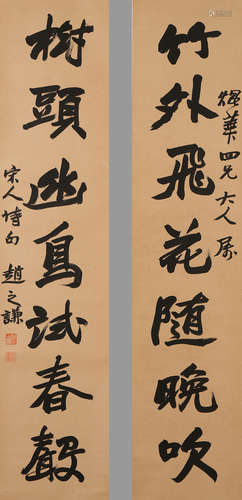 華四兄大人屬
竹外飛花隨晚吹
樹頭幽鳥試春聲
宋人詩句 趙之謙